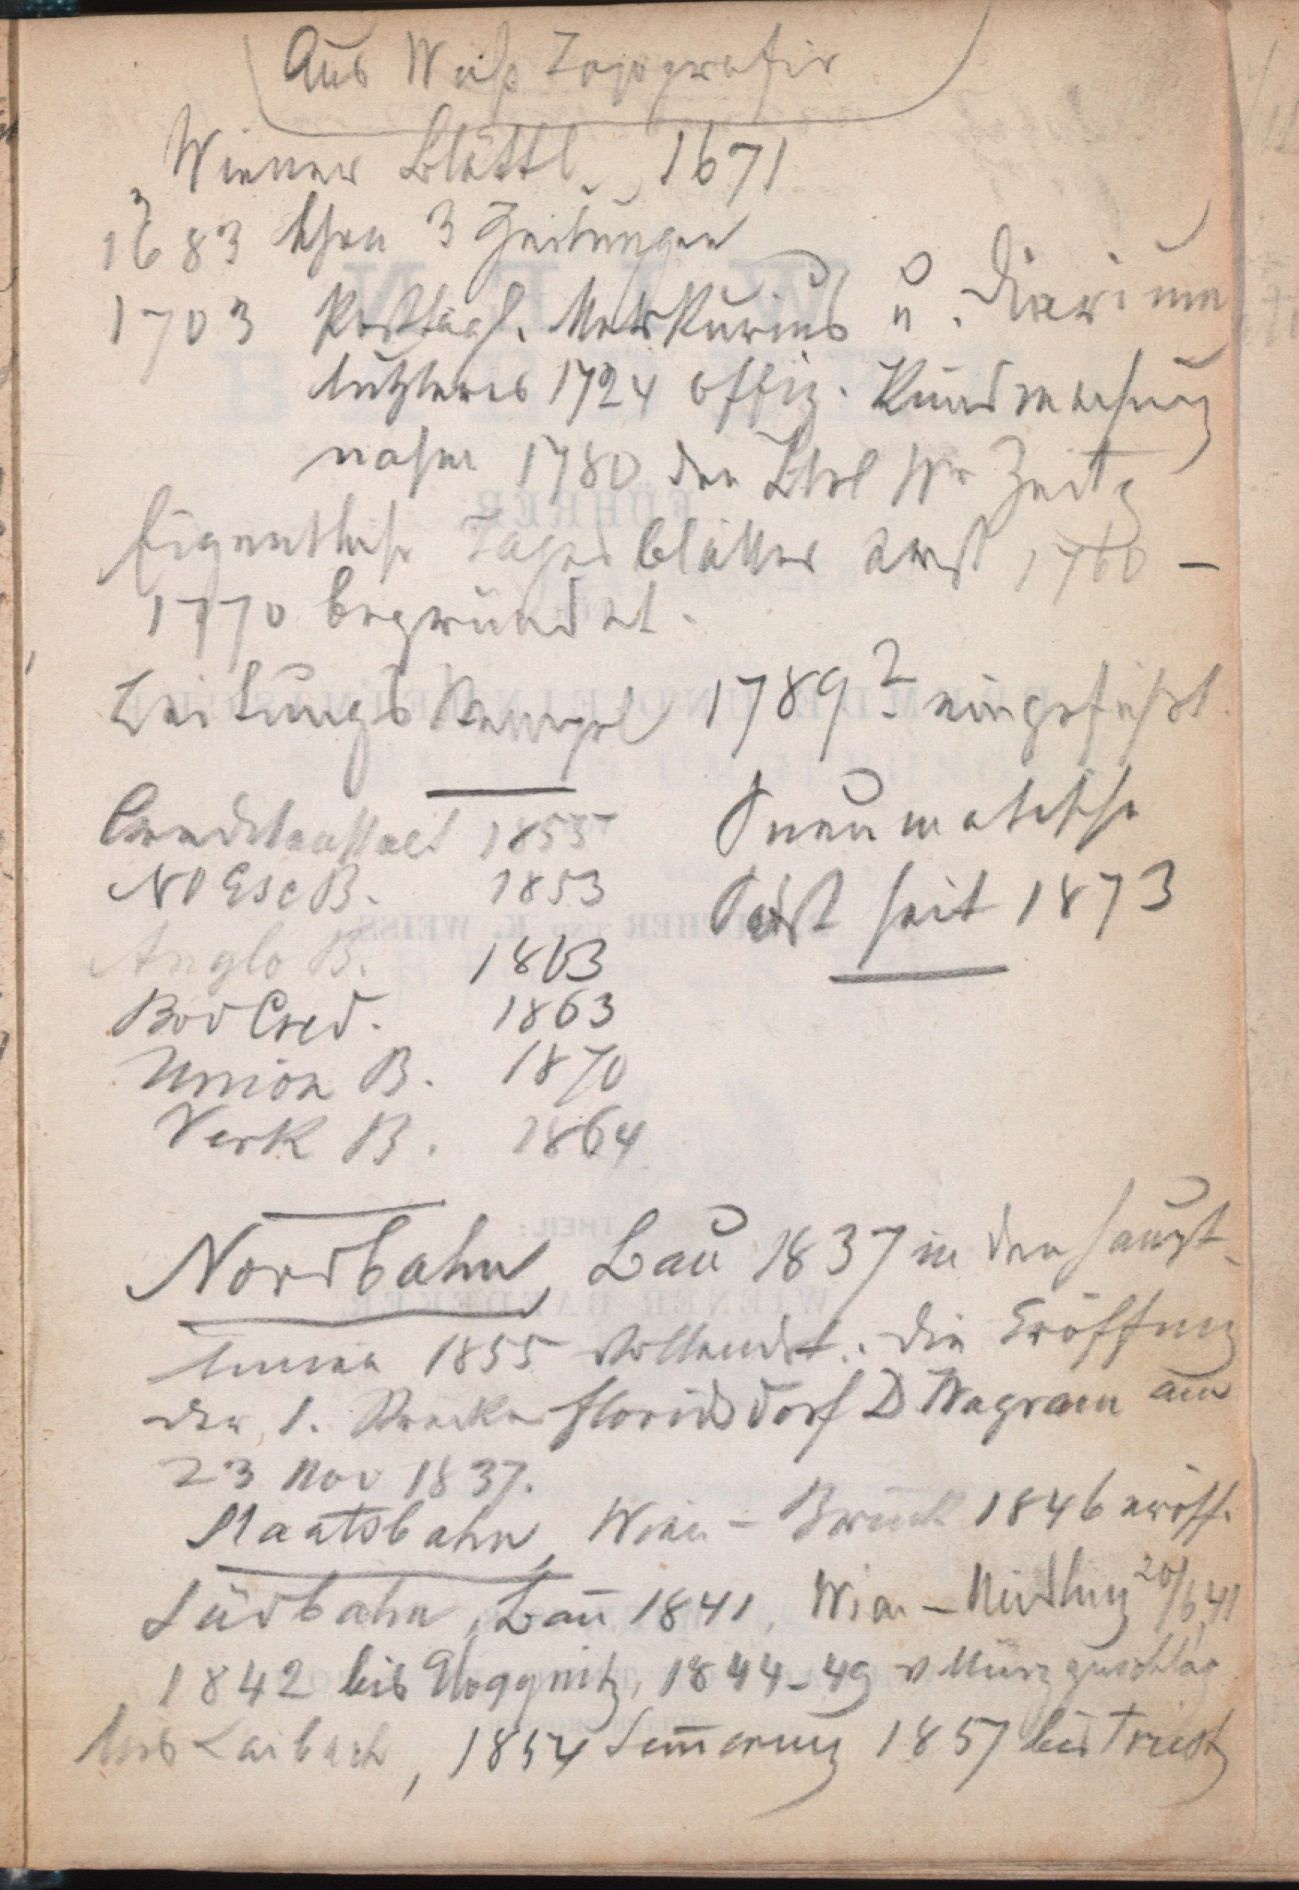 Aus Weiß Topografie
Wiener Blättl. 1671
1683 schon 3 Zeitungen
1703 Posttägl. Merkurius u. Diarium
letzteres 1724 offiz. Kundmachung
nahm 1780 den Titel Wr Zeitg
Eigentliche Tagesblätter erst 1760 –
1770 begründet.
Zeitungsstempel 1789? eingeführt
Creditanstalt 1855
NÖ Esc B. 1853
Anglo B. 1863
Bod Cred. 1863
Union B. 1870
Verk B. 1864
Pneumatische
Post seit 1873
Nordbahn, Bau 1837 in den Haupt-
linien 1855 vollendet. die Eröffnung
der 1. Strecke Floridsdorf D Wagram am
23 Nov 1837.
Staatsbahn, Wien – Bruck 1846 eröff.
Südbahn, Bau 1841, Wien – Neudling 20/6 41
1842 bis Gloggnitz, 1844–49 v Mürzzuschlag
bis Laibach, 1854 Semmering 1857 bis Triest